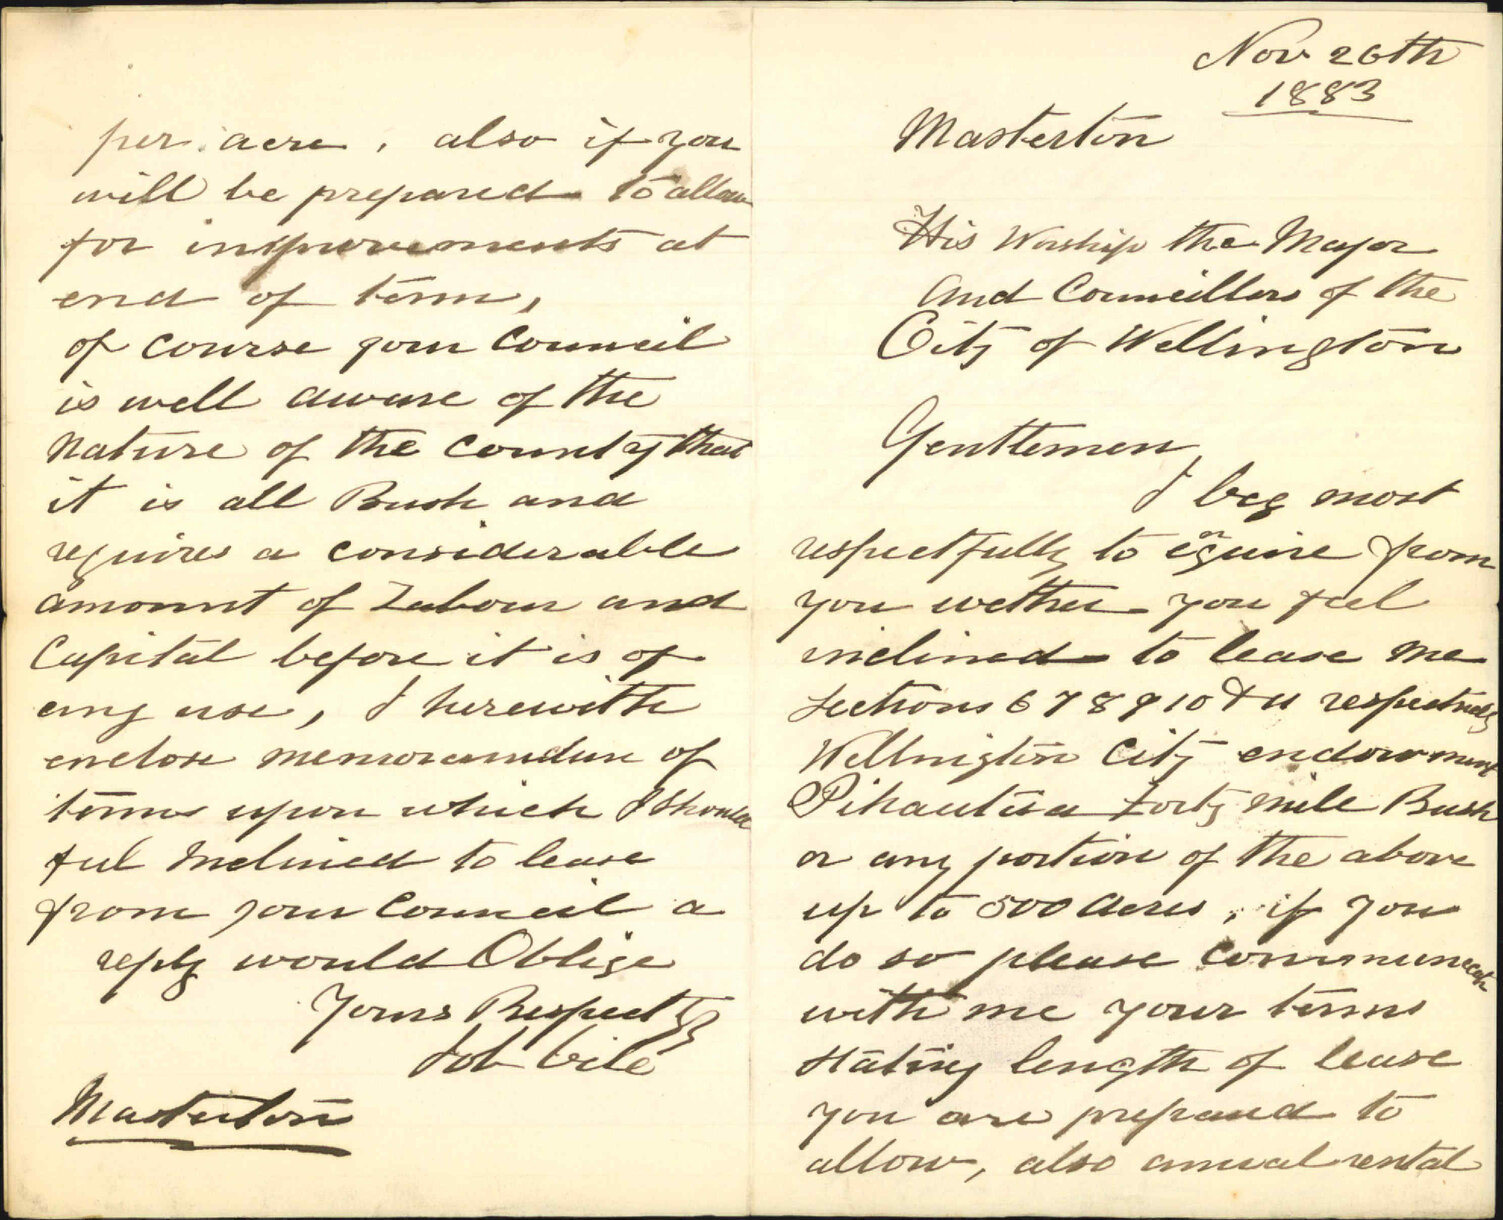 Nov 26th
1883
Masterton
His Worship the Mayor
And Councillors of the
City of Wellington
Gentlemen,
I beg most
respectfully to enquire from
you wether you feel
inclined to lease me
Sections 6 7 8 9 10 & 11 respectively
Wellington City endowment
Pihautua Forty mile Bush
or any portion of the above
up to 500 acres, if you
do so please communicate
with me your terms
stating length of lease
you are prepared to
allow, also annual rental
per acre, also if you
will be prepared to allow
for improvements at
end of term,
of course your Council
is well aware of the
nature of the country that
it is all Bush and
requires a considerable
amount of Labour and
Capital before it is of
any use, I herewith
enclose memorandum of
terms upon which I Should
feel Inclined to lease
from your Council a
reply would Oblige
Yours Respectfy
Job Vile
Masterton